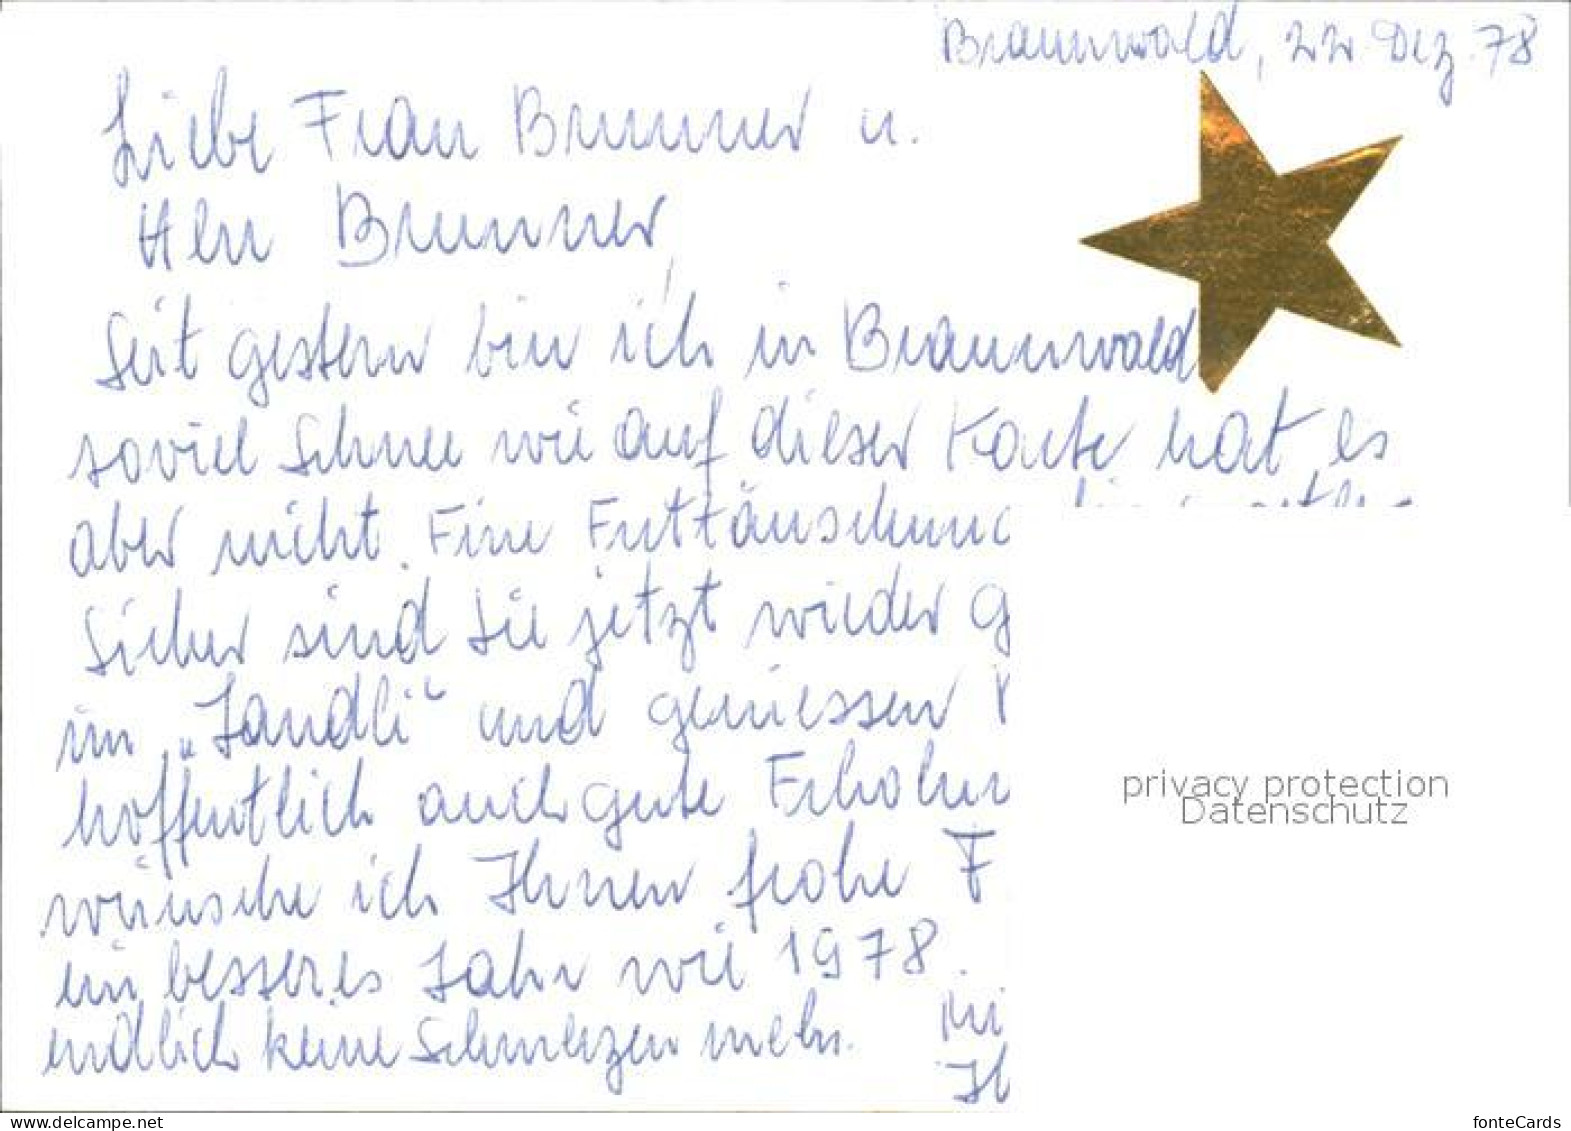 Braunwald, 22. Dez. 78
Liebe Frau Brunner u.
Herr Brunner,
Seit gestern bin ich in Braunwald
soviel Schnee wie auf dieser Karte hat es
aber nicht. Eine Enttäuschung
Sicher sind Sie jetzt wieder
im "Jandli" und geniessen
hoffentlich auch gute
wünsche ich Ihnen frohe F
ein besseres Jahr wie 1978.
endlich keine Schmerzen mehr.
privacy protection
Datenschutz
delcampe.net
fonteCards